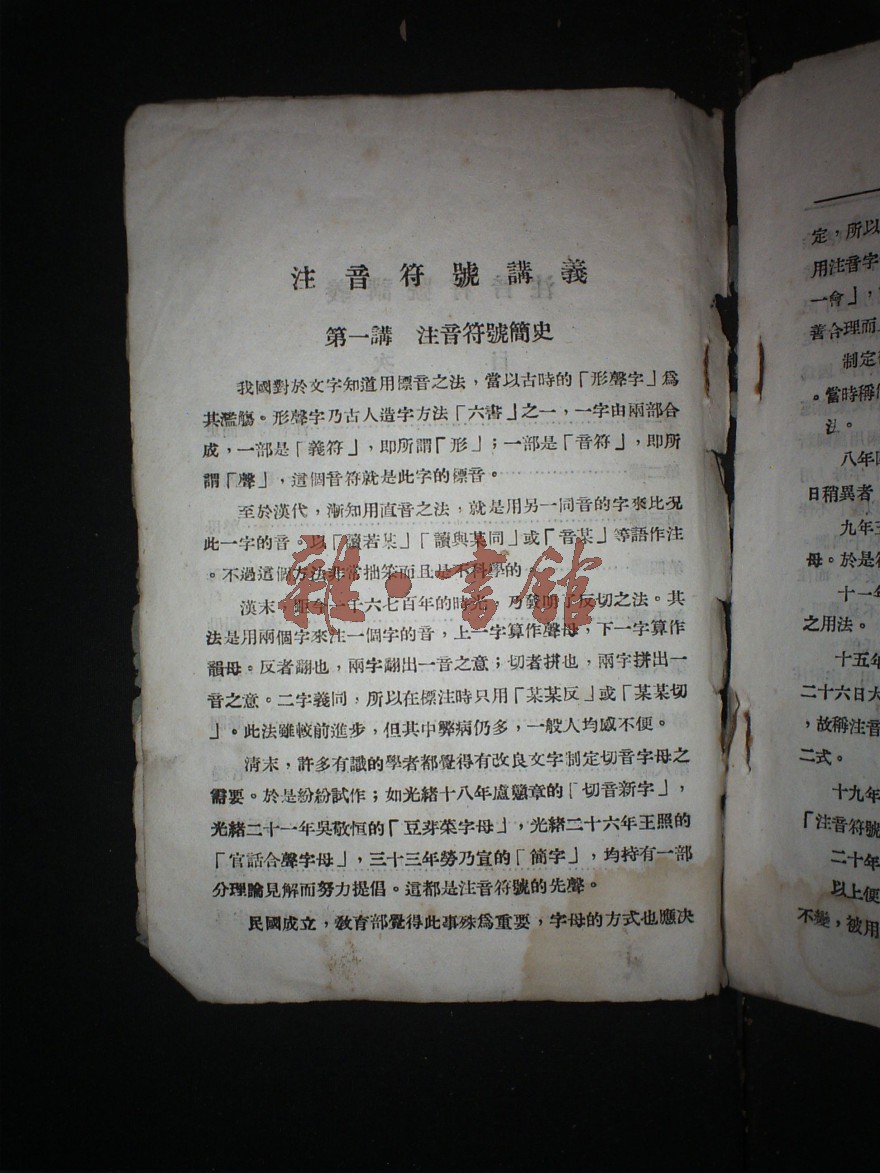 注音符號講義
第一講　注音符號簡史
我國對於文字知道用標音之法，當以古時的「形聲字」爲
其濫觴。形聲字乃古人造字方法「六書」之一，一字由兩部合
成，一部是「義符」，即所謂「形」；一部是「音符」，即所
謂「聲」，這個音符就是此字的標音。
至於漢代，漸知用直音之法，就是用另一同音的字來比况
此一字的音。以「讀若某」「讀與某同」或「音某」等語作注
。不過這個方法非常拙笨而且是不科學的。
漢末，距今一千六七百年的時光，乃發明了反切之法。其
法是用兩個字來注一個字的音，上一字算作聲母，下一字算作
韻母。反者翻也，兩字翻出一音之意；切者拼也，兩字拼出一
音之意。二字義同，所以在標注時只用「某某反」或「某某切
」。此法雖較前進步，但其中弊病仍多，一般人均感不便。
清末，許多有識的學者都覺得有改良文字制定切音字母之
需要。於是紛紛試作；如光緒十八年盧戇章的「切音新字」，
光緒二十一年吳敬恒的「豆芽菜字母」，光緒二十六年王照的
「官話合聲字母」，三十三年勞乃宣的「簡字」，均持有一部
分理論見解而努力提倡。這都是注音符號的先聲。
民國成立，敎育部覺得此事殊爲重要，字母的方式也應决
雜·書館
定，所以
用注音字
一會」，
善合理而
制定
。當時稱
注。
八年
日稍異者
九年
母。於是
十一年
之用法。
十五年
二十六日大
，故稱注音
二式。
十九年
「注音符號
二十年
以上便
不變，被用